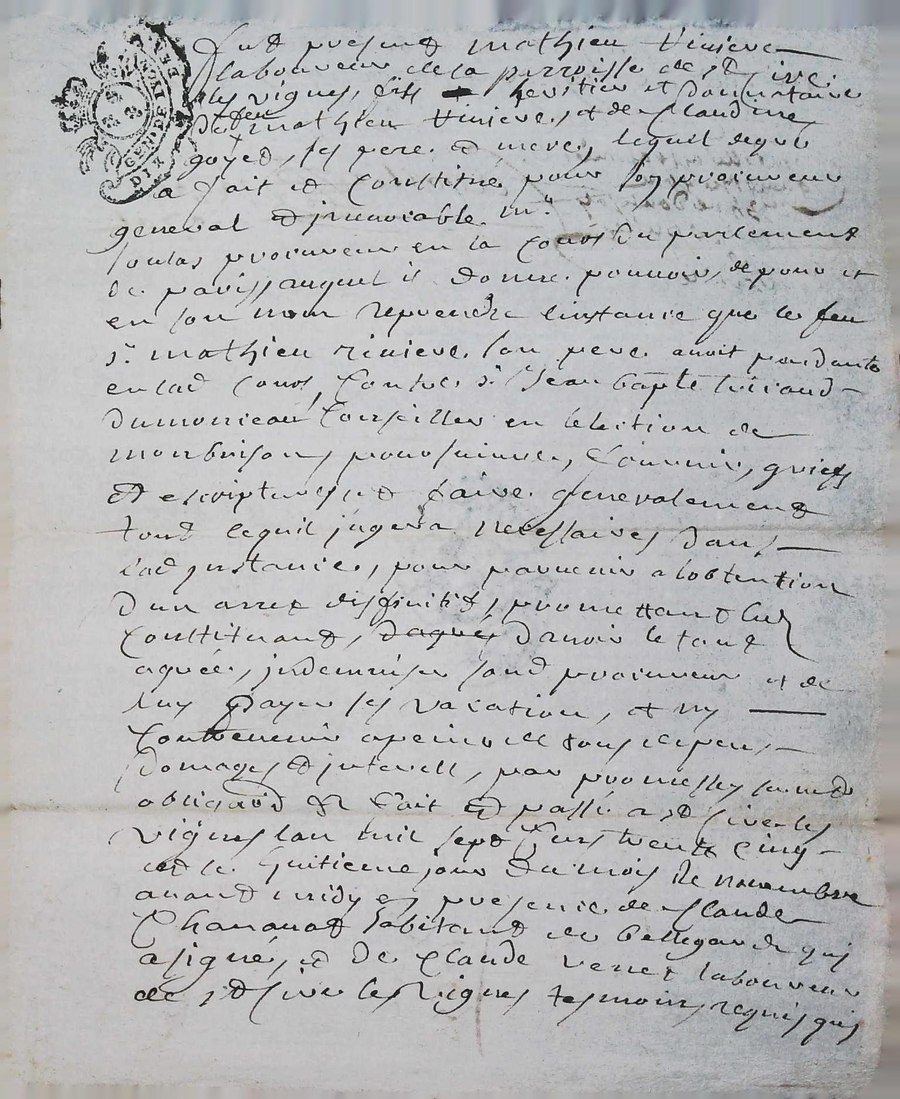 GEN. DE LYON
DIX
Fut present mathieu Riniere
laboureur de la parroisse de st Cire
les vignes, fils heritier et donnataire
de feu mathieu Riniere, et de Claudine
goyet, ses pere et mere, lequel de gré
a fait et Constitué pour son procureur
general et irrevocable mr
soulas procureur en la Cour du parlement
de paris, auquel il donne pouvoir, de pour et
en son nom reprendre linstance que le feu
sr mathieu riniere son pere avoit pendante
en lad Cour, Contre sr Jean bapte
dumonceau Conseiller en lelection de
monbrison, poursuivre, fournir, griefs
et escriptures, et faire generalement
tout ce quil jugera necessaires dans
lad instance, pour parvenir a lobtention
dun arret diffinitif, promettant led
Constituant, davoir le tout
agréé, indemniser sond procureur et de
luy payer ses vacation, et ny
Contrevenir a peine de tous depens
domages et interest, par promesses serment
obligaon &c fait et passé a st Cire les
vignes lan mil sept Cens trente Cinq
et le huitieme jour du mois de novembre
avant midy en presence de Claude
Chanavat habitant de bellegarde qui
a signé, et de Claude verret laboureur
de st Cire les Vignes tesmoins requis qui